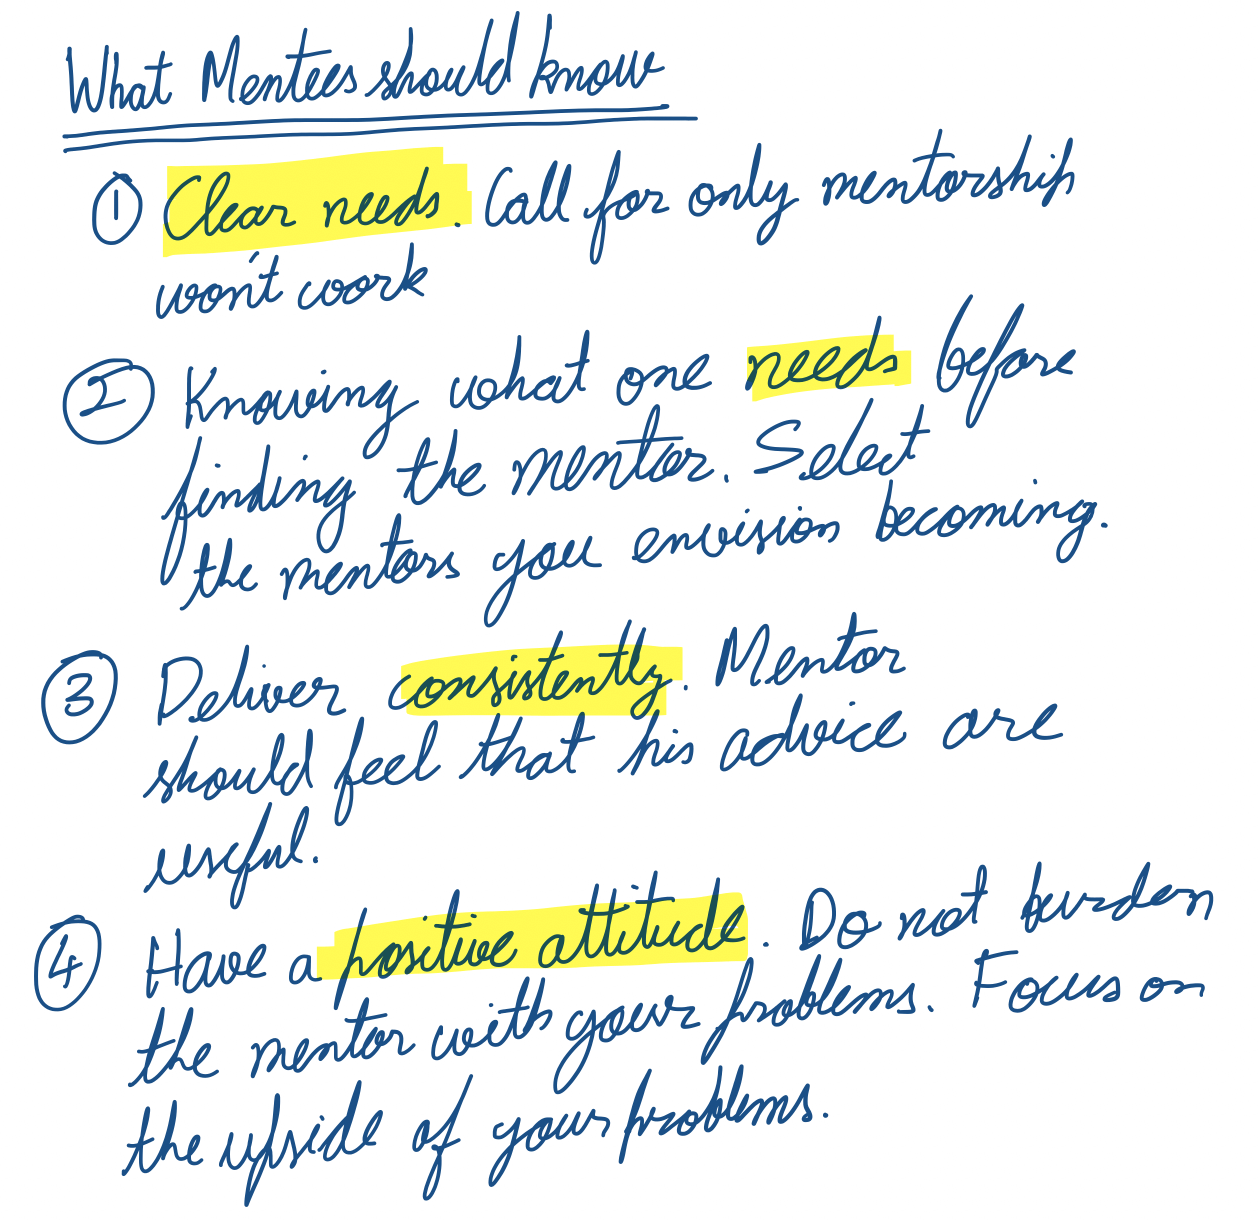 What Mentees should know
① Clear needs. Call for only mentorship
won't work
② Knowing what one needs before
finding the mentor. Select
the mentors you envision becoming.
③ Deliver consistently. Mentor
should feel that his advice are
useful.
④ Have a positive attitude. Do not burden
the mentor with your problems. Focus on
the upside of your problems.